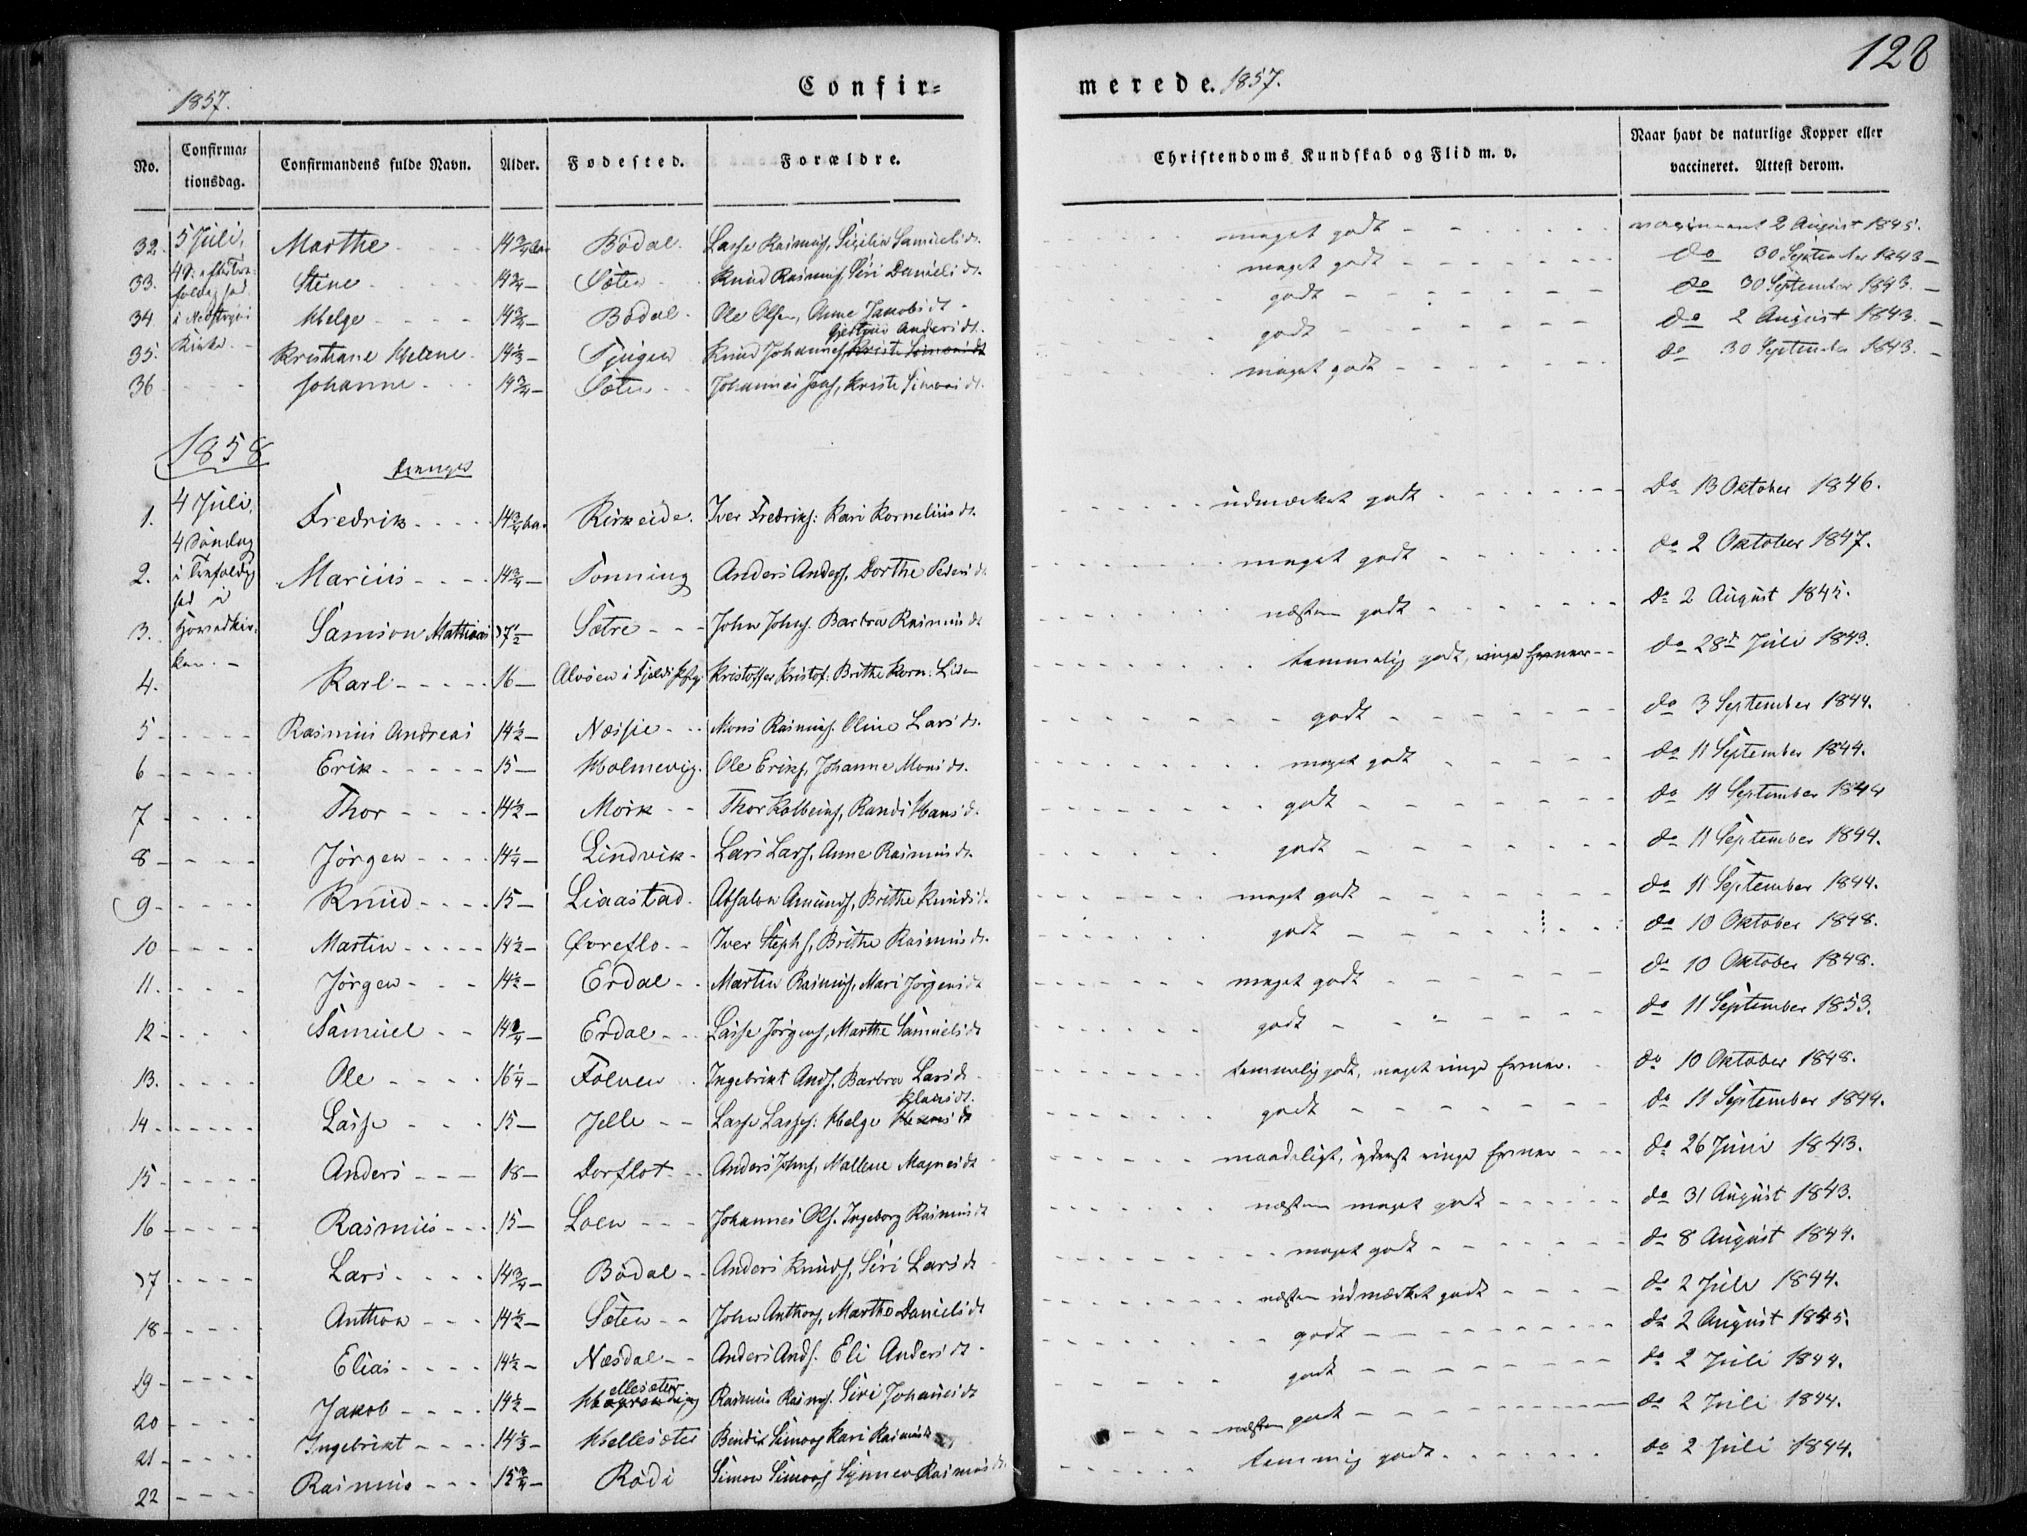 128
1857. Confirmerede. 1857.
No. Confirmationsdag. Confirmandens fulde Navn. Alder. Fødested. Forældre. Christendoms Kundskab og Flid m. v. Naar havt de naturlige Kopper eller vaccineret. Attest derom.
32. 5 Juli, Marthe 14¾ Bödal. Lasse Rasmuss, Sisilia Samuelsdt. meget godt 2 August 1845.
33. Stine 14¾ Sæten Knud Rasmuss, Siri Danielsdt. meget godt do 30 September 1843
34 Helge 14¾ Bödal. Ole Olsen, Anne Jakobsdt godt do 30 September 1843.
35. Kirke Kristiane Helene 14⅓ Tjugen Knud Johanness, Gjertrue Andersdt. godt do 2 August 1843.
36 Johanne 14¾ Sæten Johannes Jons, Kriste Simonsdt. meget godt do 30 September 1843.
1858
Drenge
1. 4 Juli, Fredrik 14¾ Kirkeide. Iver Fredriks: Kari Korneliusdt. udmærket godt Do 13 Oktober 1846.
4 Søndag
2. i Trefoldig Marius 14¾ Tonning Anders Anders, Dorthe Pedersdt meget godt do 2 Oktober 1847.
3. Hovedkirken. Samson Mathias 17½ Sætre John Johns. Barbra Rasmusdt næsten godt Do 2 August 1845.
4. Karl 16 Alvöen i Fjeld Kristoffer Kristof: Brithe Korn: temmelig godt, ringe Evner do 28d Juli 1843.
5 Rasmus Andreas 14½ Næsje Mons Rasmuss. Oline Larsdt. godt do 3 September 1844.
6 Erik 15 Holmevig. Ole Eriks, Johanne Monsdt. meget godt do 11 September 1844.
7 Thor 14½ Mörk Thor Kolbeins, Randi Hansd. godt do 11 September 1844
8 Jörgen 14¼ Lindvik Lars Lars. Anne Rasmusdt. godt do 11 September 1844.
9 Knud 15 Liaastad. Absalon Amunds, Brithe Knudsdt. meget godt do 11 September 1844.
10 Martin 14½ Øvreflo Iver Stephs, Brithe Rasmusdt. godt do 10 Oktober 1848.
11. Jörgen 14½ Erdal Martin Rasmuss, Mari Jörgensdt meget godt do 10 Oktober 1848.
12 Samuel Erdal Lasse Jörgens, Marthe Samuelsdt godt do 11 September 1853.
13. Ole 16¼ Folven Ingebrikt Ands. Barbra Larsd temmelig godt, meget ringe Evner. do 10 Oktober 1848.
14 Lasse 15 Jelle Lasse Lasses: Helge Klausdt. godt do 11 September 1844.
15 Anders 18 Dorflot Anders Johns, Mallene Magnesdt maadeligt, yderst ringe Evner do 26 Juni 1843.
16 Rasmus 15 Loen Johannes Ols. Ingeborg Rasmusdt næsten meget godt do 31 August 1843.
17 Lars 14¾ Bödal Anders Knuds, Siri Larsdt meget godt do 8 August 1844.
18 Anthon 14½ Sæten John Anthons, Marthe Danielsdt næsten udmærket godt do 2 Juli 1844.
19 Elias 14½ Næsdal Anders Ands. Eli Andersdt godt do 2 August 1845.
20 Jakob 14½ Hellesæter Rasmus Rasmuss. Siri Johannesdt godt do 2 Juli 1844.
21 Ingebrikt 14⅓ Hellesæter Bendik Simons Kari Rasmusdt næsten godt do 2 Juli 1844.
22 Rasmus 15¾ Rödi Simon Simons Synneva Rasmusdt. temmelig godt. do 2 Juli 1844.